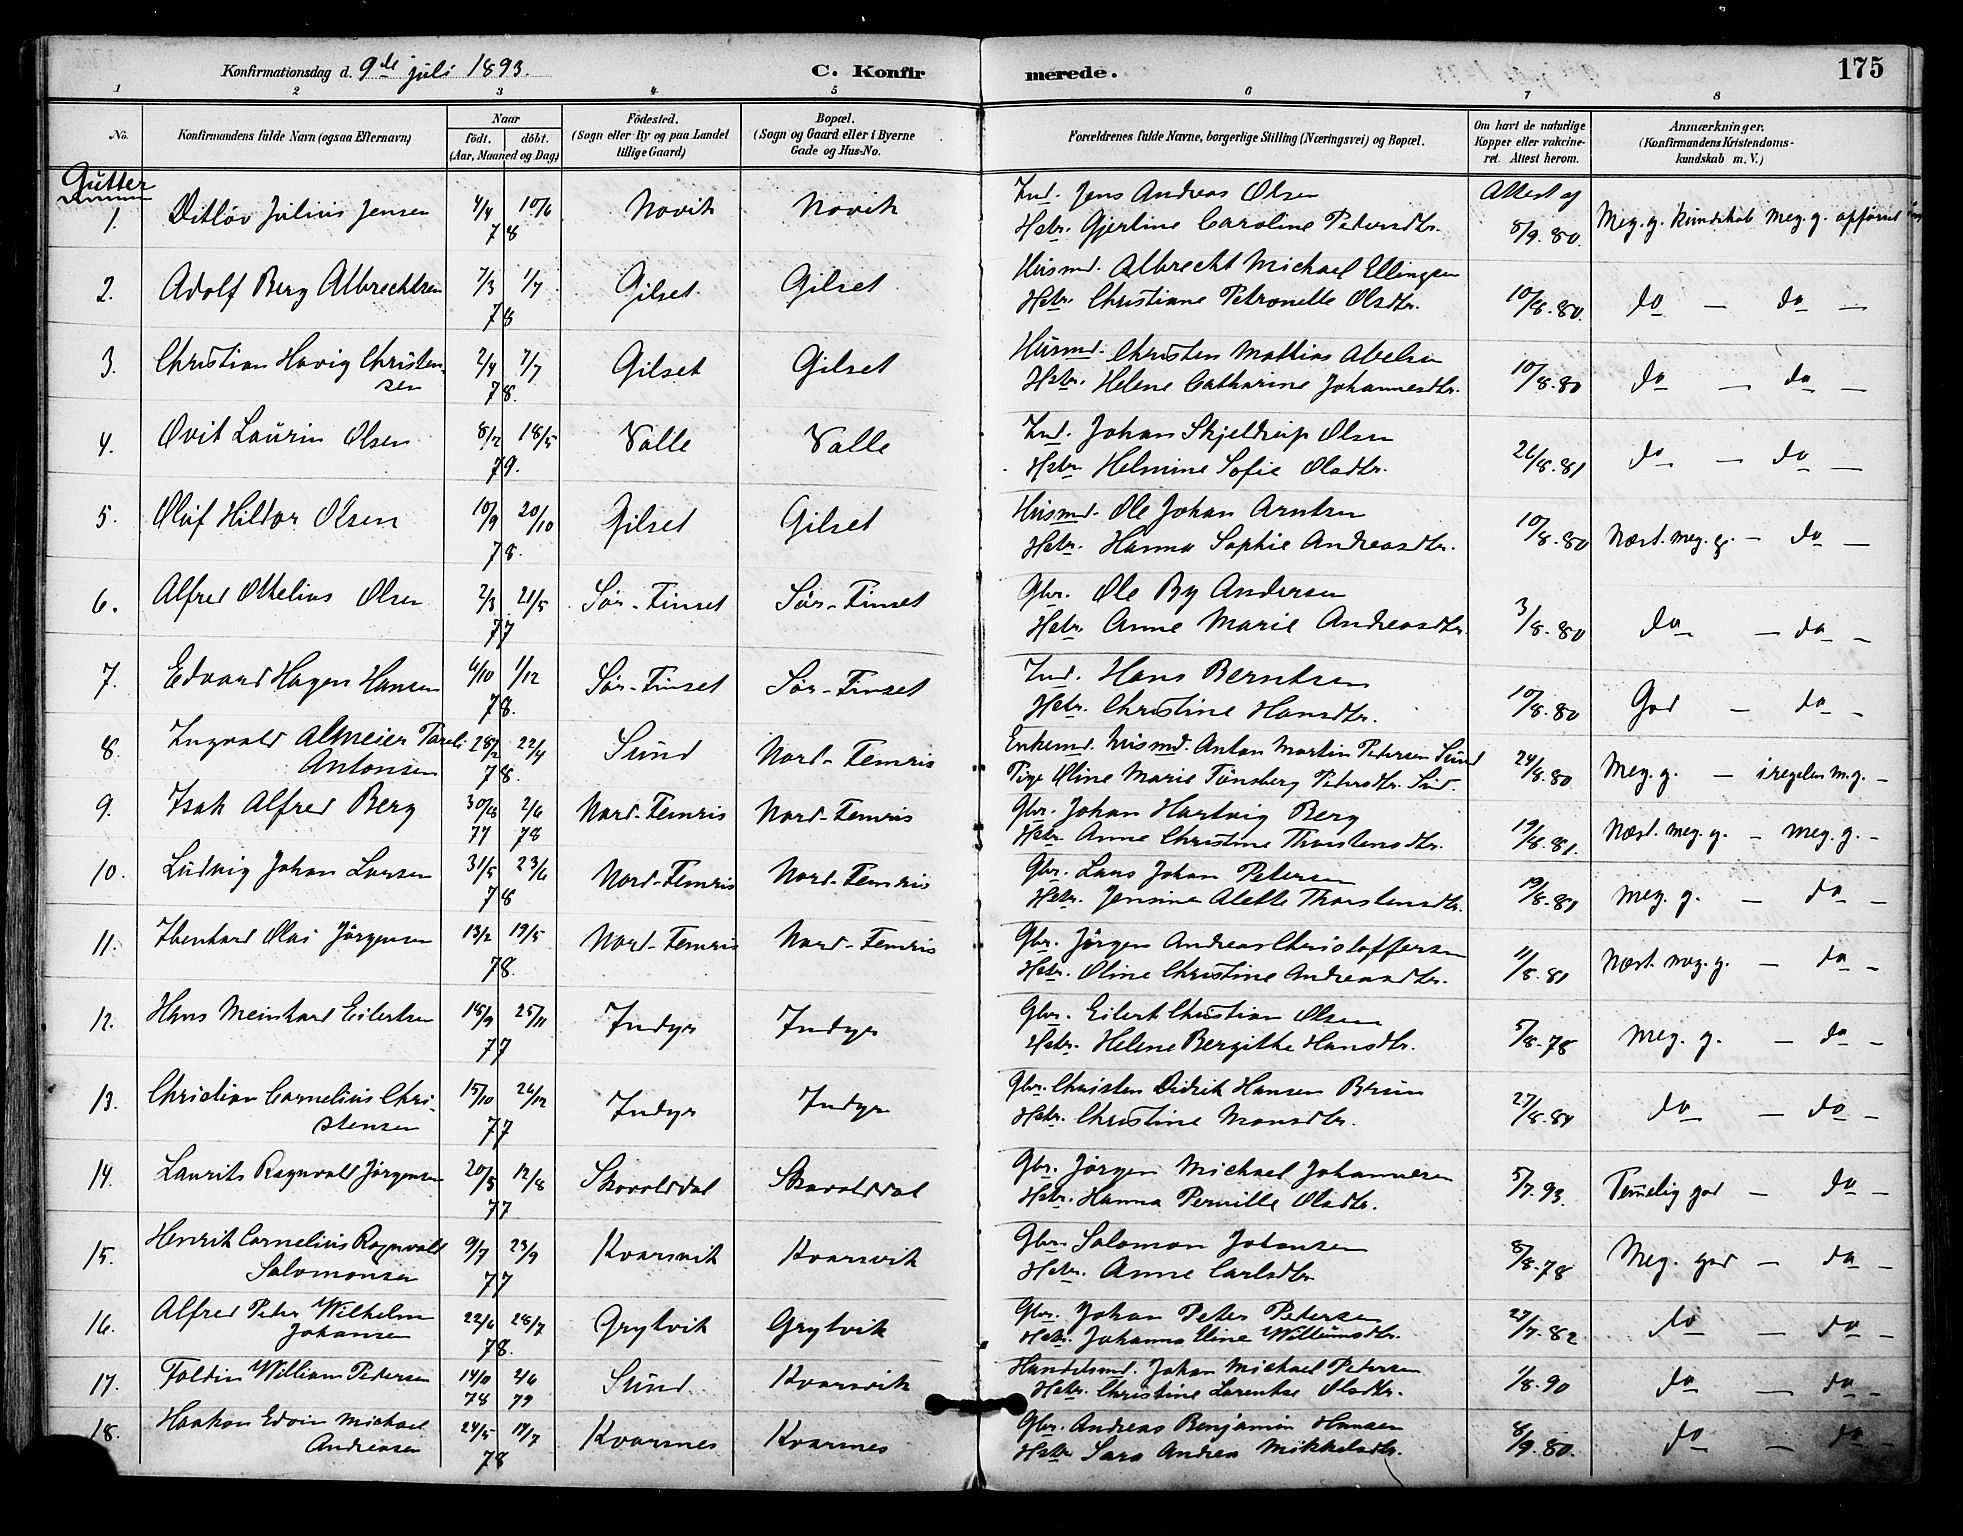 Konfirmationsdag d. 9de juli 1893.
C. Konfir merede.
175
1 2 3 4 5 6 7 8
No.
Konfirmandens fulde Navn (ogsaa Efternavn)
Naar
födt. döbt.
(Aar, Maaned og Dag)
Födested.
(Sogn eller By og paa Landet
tillige Gaard)
Bopæl.
(Sogn og Gaard eller i Byerne
Gade og Hus-No.
Forældrenes fulde Navne, borgerlige Stilling (Næringsvei) og Bopæl.
Om havt de naturlige
Kopper eller vakcine-
ret. Attest herom.
Anmærkninger.
(Konfirmandens Kristendoms-
kundskab m. V.)
Gutter
1. Ditløv Julius Jensen 4/4 10/6 78 Novik Novik Ind. Jens Andreas Olsen Attest af
Hstr. Gjertine Caroline Pedersdtr. 8/9. 80. Meg. g. kundskab meg. g. opførsel
2. Adolf Berg Albrechtsen 7/3 1/7 78 Gilset Gilset Husmd. Albrecht Michael Ellingsen
Hstr. Christiane Petronelle Olsdtr. 10/8. 80. do — do —
3. Christian Havig Christen-
sen 2/4 7/7 78. Gilset Gilset Husmd. Christen Mathias Abelsen
Hstr. Helene Catharine Johannesdtr. 10/8. 80 do — do —
4. Ovit Laurin Olsen 8/2 18/5 79. Valle Valle Ind. Johan Skjeldrup Olsen
Hstr Helmine Sofie Olsdtr. 26/8. 81 do — do —
5. Oluf Hildor Olsen 10/9 20/10 78. Gilset Gilset Husmd. Ole Johan Arntsen
Hstr. Hanna Sophie Andreasdtr. 10/8. 80 Næst. meg. g. — do —
6. Alfred Othelius Olsen 2/3 21/5 77 Sør-Finset Sør-Finset Gbr. Ole By Andersen
Hstr. Anne Marie Andreasdtr. 3/8. 80 do — do —
7. Edvard Hagen Hansen 4/10 1/12 78. Sør-Finset Sør-Finset Ind. Hans Berntsen
Hstr. Christine Hansdtr. 10/8. 80 God — do —
8. Ingvald Almeier
Antonsen 28/2 22/4 78. Sund Nord-Femris Enkemd. husmd. Anton Martin Petersen Sund
Pige Oline Marie Tønsberg Pedersdtr. 24/8. 80 Meg. g. — i regelen m. g. —
9. Isak Alfred Berg 30/12 2/6 77 78 Nord-Femris Nord-Femris Gbr. Johan Hartvig Berg
Hstr. Anne Christine Thorstensdtr. 19/8. 81. Næst. meg. g. — meg. g. —
10. Ludvig Johan Larsen 31/5 23/6 78 Nord-Femris Nord-Femris Gbr. Lars Johan Petersen
Hstr. Jensine Alette Thorstensdtr. 19/8. 81 meg. g. — do —
11. Ibenhard Olai Jørgensen 13/2 19/5 78. Nord-Femris Nord-Femris Gbr. Jørgen Andreas Christoffersen
Hstr. Oline Christine Andreasdtr. 11/8. 81 Næst. meg. g. — do —
12. Hans Meinhard Eilertsen 18/9 25/11 77 Indyr Indyr Gbr. Eilert Christian Olsen
Hstr. Helene Bergithe Hansdtr. 5/8. 78 Meg. g. — do —
13. Christian Cornelius Chri-
stensen 15/10 26/12 77 Indyr Indyr Gbr. Christen Didrik Hansen Bruun
Hstr. Christine Monsdtr. 27/8. 84 do — do —
14. Laurits Ragnvald Jørgensen 20/5 12/8 77 Skavolddal Skavolddal Gbr. Jørgen Michael Johannesen
Hstr. Hanna Pernille Olsdtr. 5/7. 93. Temelig god — do —
15. Henrik Cornelius Ragnvald
Salomonsen 9/7 23/9 77 Kvarsvik Kvarsvik Gbr. Salomon Johansen
Hstr. Anne Carlsdtr. 8/8. 78 Meg. god — do —
16. Alfred Peter Wilhelm
Johansen 22/6 28/7 78. Grytvik Grytvik Gbr. Johan Peter Petersen
Hstr. Johanna Eline Willumsdtr. 27/7. 82 do — do —
17. Foldin William Petersen 14/11 2/6 78 79 Sund Kvarsvik Handelsmd. Johan Michael Petersen
Hstr. Christine Larentse Olsdtr. 1/8. 90 do — do —
18. Haakon Edvin Michael
Andreasen 24/5 14/7 78 Kvarsnes Kvarsnes Gbr. Andreas Benjamin Hansen
Hstr Sara Andrea Mikkelsdtr. 8/9. 80. do — do —